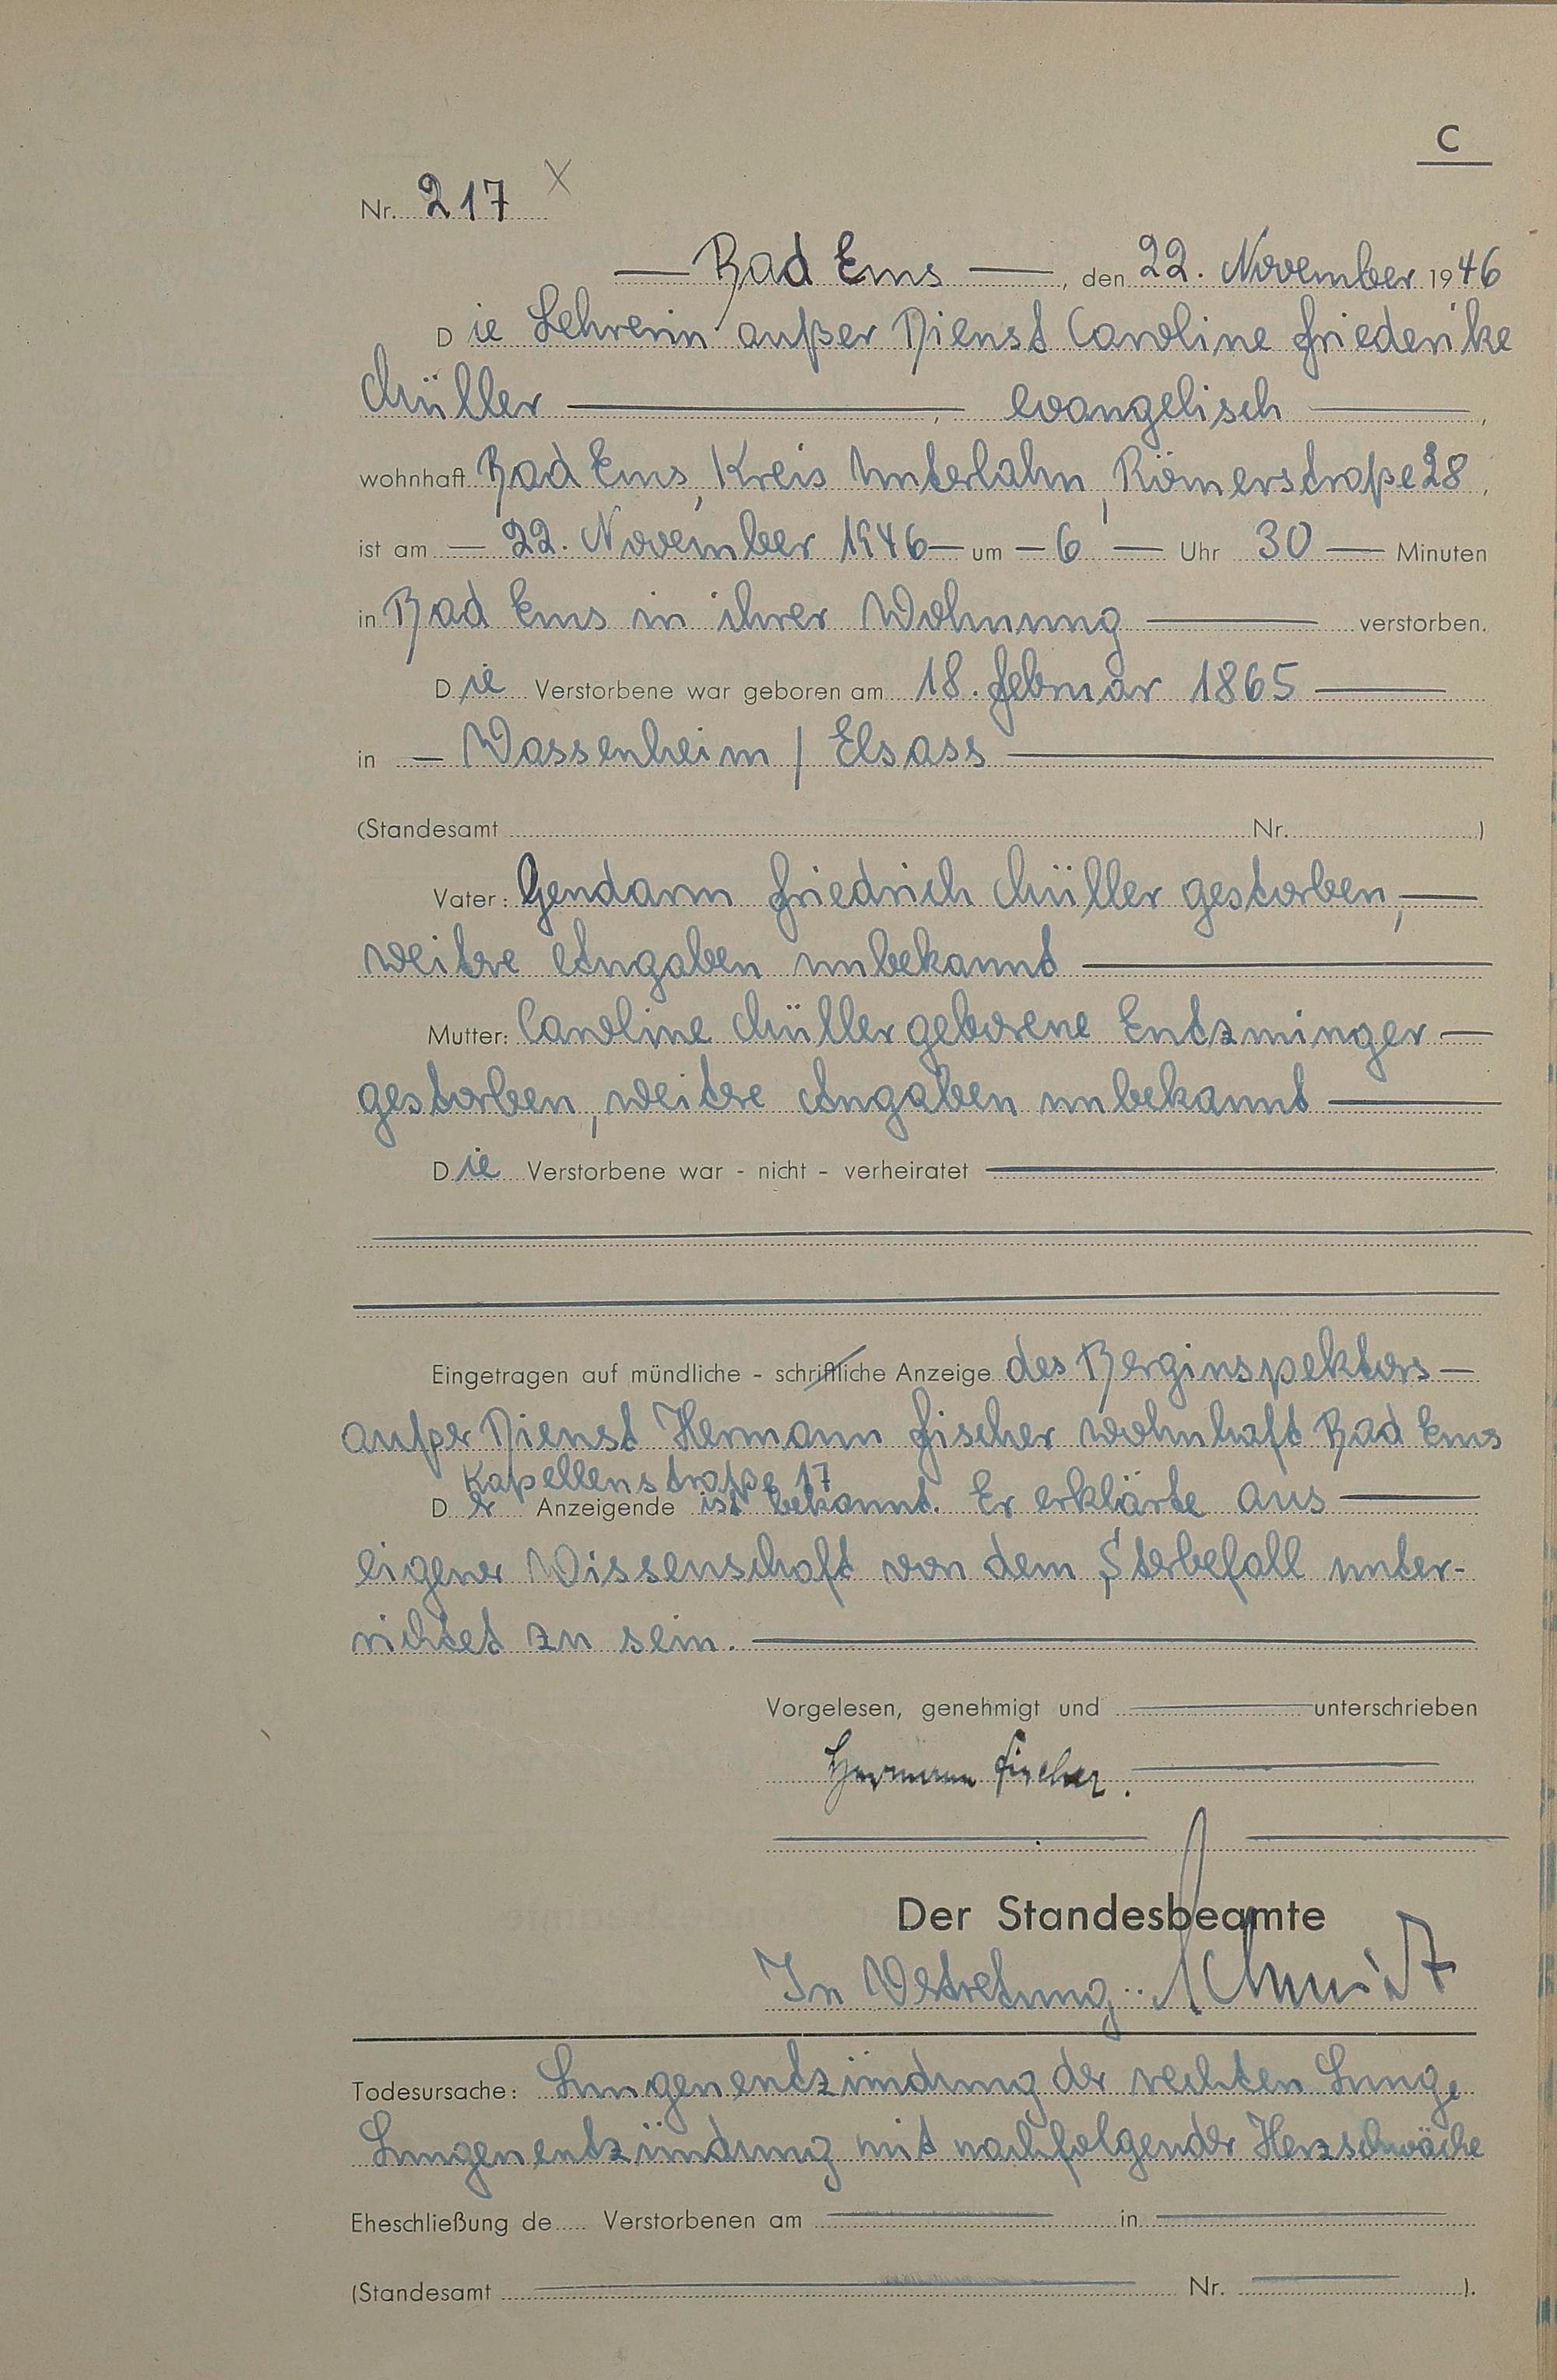 C
Nr. 217 X
— Bad Ems —, den 22. November 1946
Die Lehrerin außer Dienst Caroline Friederike
Müller —, evangelisch —,
wohnhaft Bad Ems, Kreis Unterlahn, Römerstraße 28,
ist am — 22. November 1946 — um — 6 — Uhr 30 — Minuten
in Bad Ems in ihrer Wohnung — verstorben.
Die Verstorbene war geboren am 18. Februar 1865 —
in — Wassenheim / Elsass —
(Standesamt Nr. )
Vater: Gendarm Friedrich Müller gestorben, —
weitre Angaben unbekannt —
Mutter: Caroline Müller geborene Entzminger —
gestorben, weitre Angaben unbekannt —
Die Verstorbene war - nicht - verheiratet —
Eingetragen auf mündliche - schriftliche Anzeige des Berginspektors —
außer Dienst Hermann Fischer wohnhaft Bad Ems
Kapellenstraße 17
Der Anzeigende ist bekannt. Er erklärte aus —
eigener Wissenschaft von dem Sterbefall unter-
richtet zu sein. —
Vorgelesen, genehmigt und — unterschrieben
Hermann Fischer. —
Der Standesbeamte
In Vetretung: Schmidt
Todesursache: Lungenentzündung der rechten Lunge
Lungenentzündung mit nachfolgender Herzschwäche
Eheschließung de Verstorbenen am — in —
(Standesamt — Nr. — ).